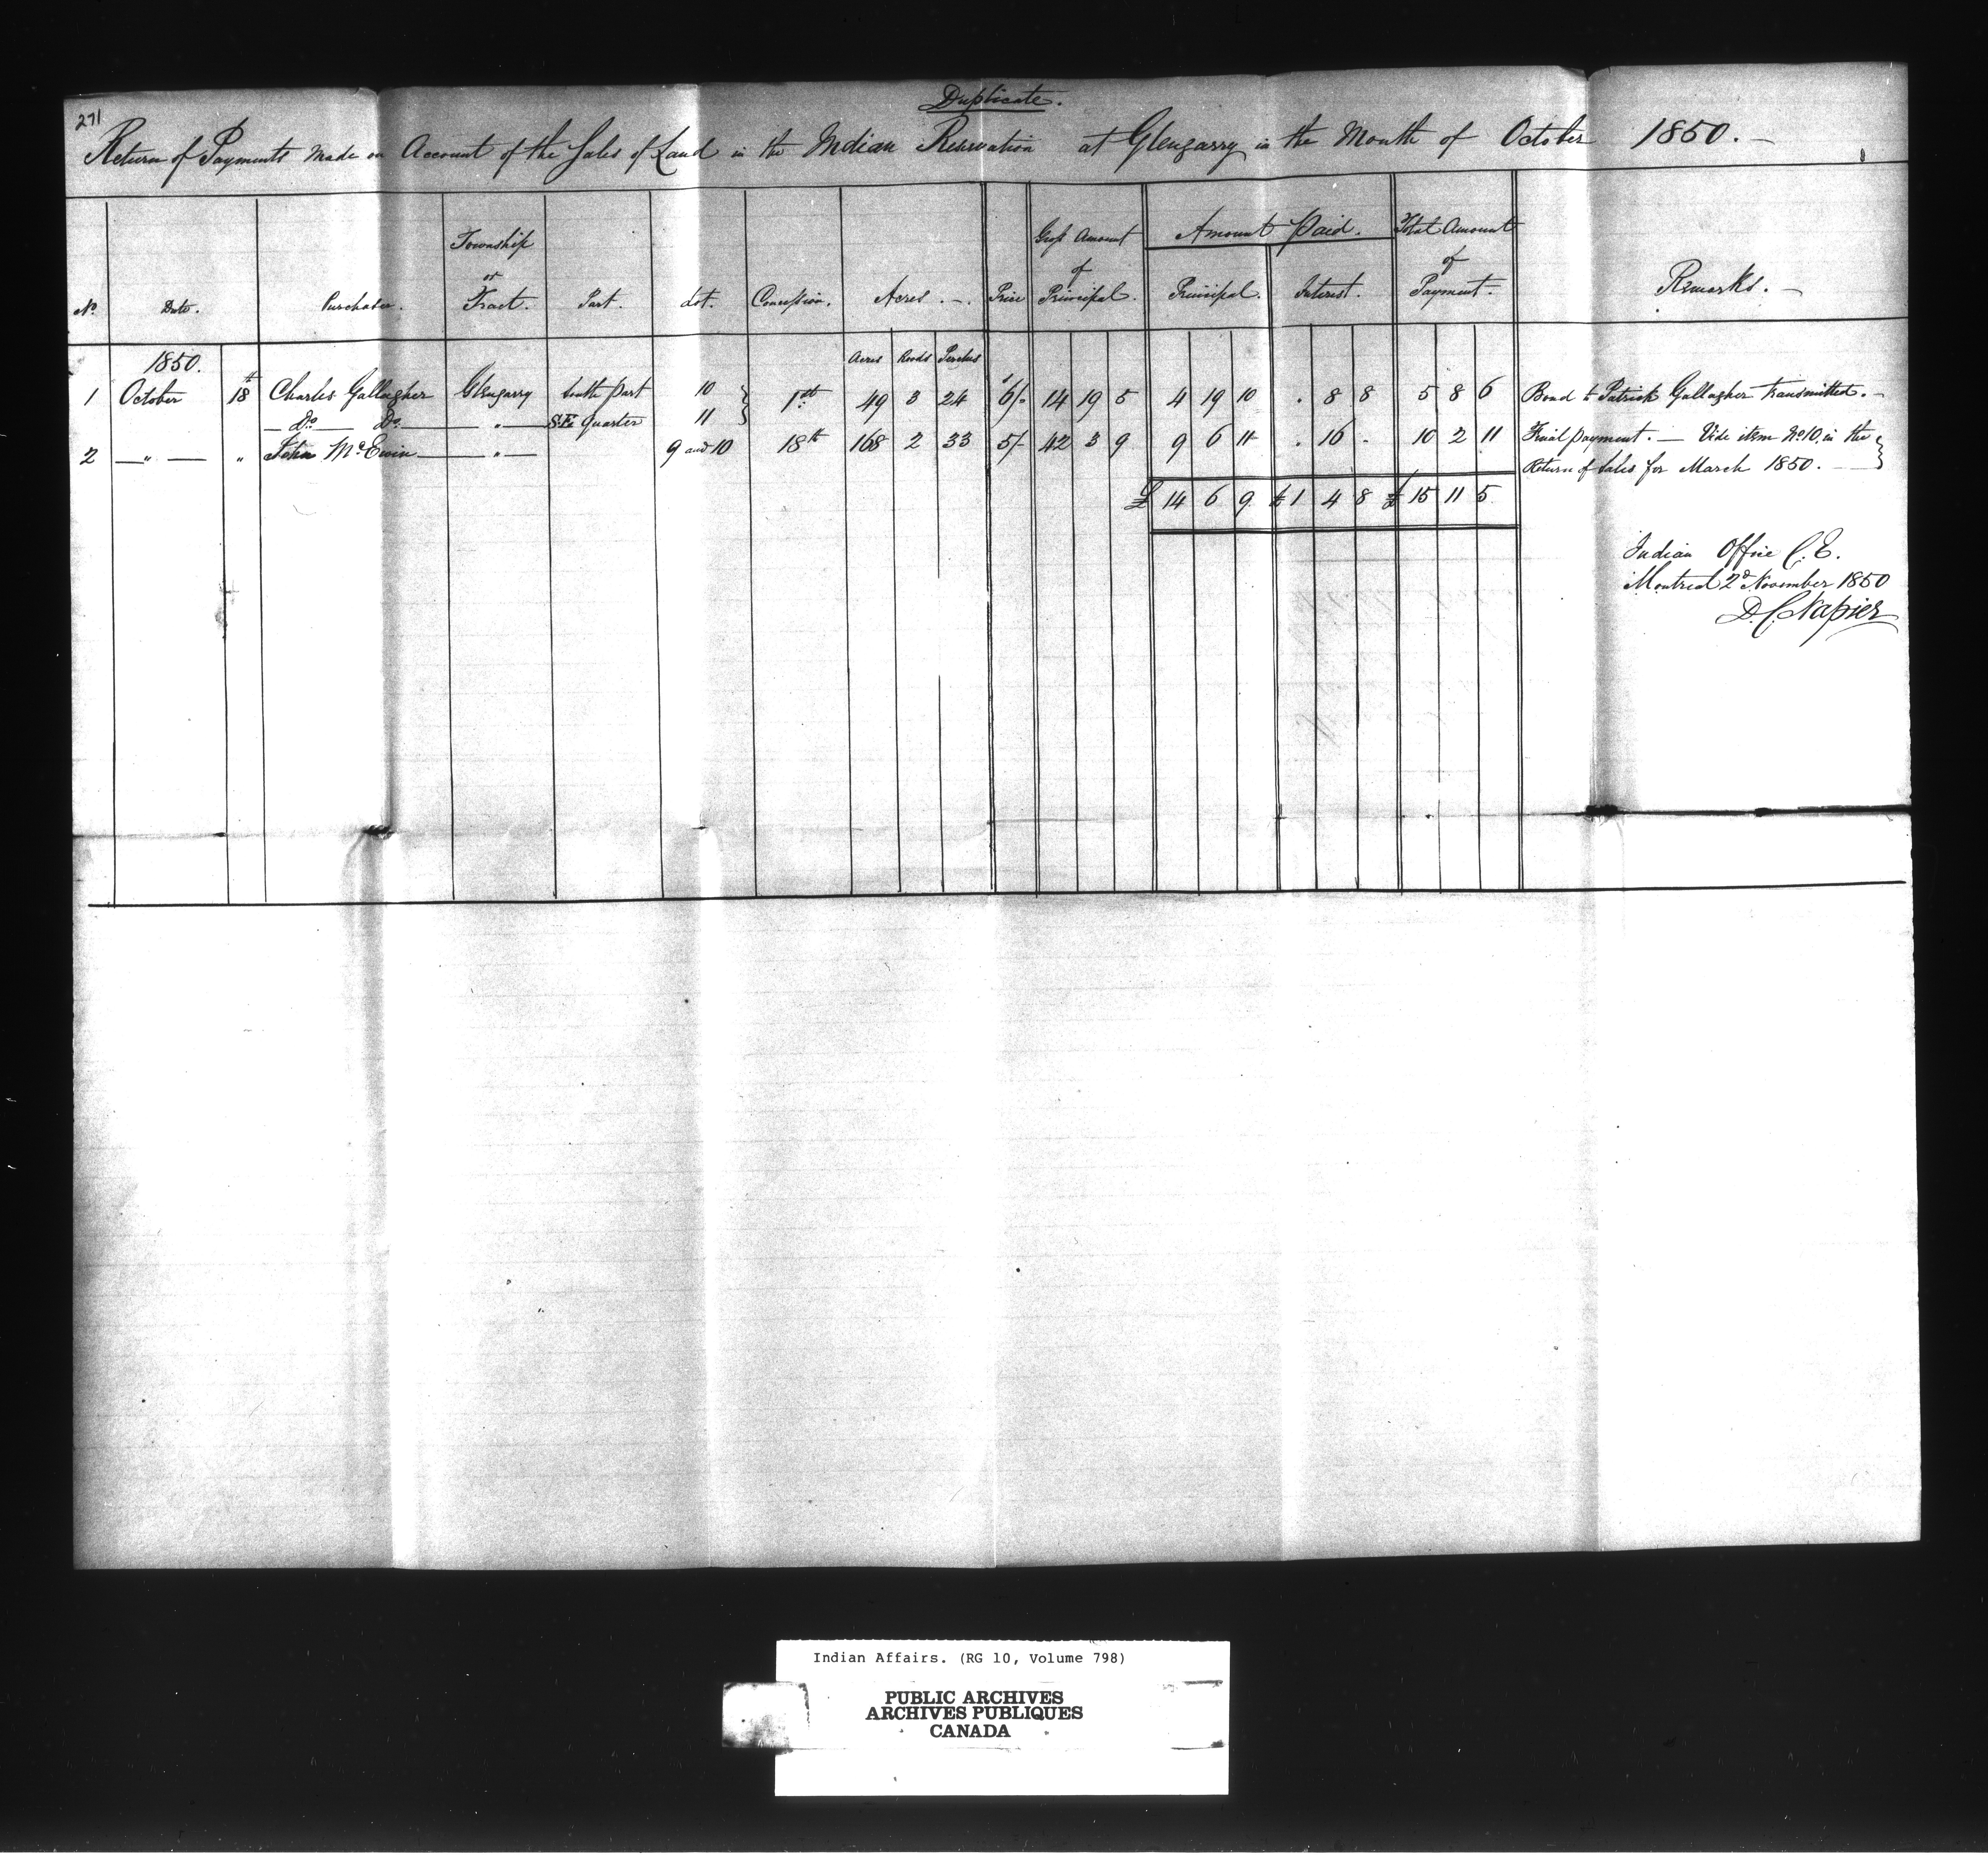 Duplicate.
271
Return of Payments Made on Account of the Sales of Land in the Indian Reservation at Glengarry in the Month of October 1850. —
No. Date. Purchaser. Township or Tract. Part. Lot. Concession. Acres. —. Price Gross Amount of Principal. Amount Paid. Principal. Interest. Total Amount of Payment. Remarks. —
1850. Acres Roods Perches
1 October 18th Charles Gallagher Glengarry South part 10 } 1st 49 3 24 6/- 14 19 5 4 19 10 . 8 8 5 8 6 Bond to Patrick Gallagher transmitted. —
— Do — Do — " — S.E. Quarter 11 }
2 — " — " John McEwin — " — 9 and 10 18th 168 2 33 5/- 42 3 9 9 6 11 . 16 . 10 2 11 Final payment. — Vide item No. 10, in the }
Return of Sales for March 1850. — }
£ 14 6 9 £ 1 4 8 £ 15 11 5
Indian Office C. E.
Montreal 2d November 1850
D. C. Napier
Indian Affairs. (RG 10, Volume 798)
PUBLIC ARCHIVES
ARCHIVES PUBLIQUES
CANADA